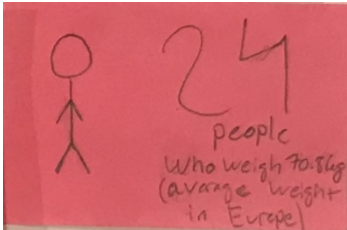 24
people
Who weigh 70.8kg
(average weight
in Europe)